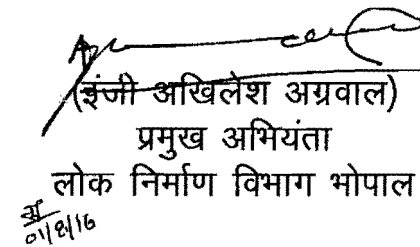 (इंजी अखिलेश अग्रवाल)
प्रमुख अभियंता
लोक निर्माण विभाग भोपाल